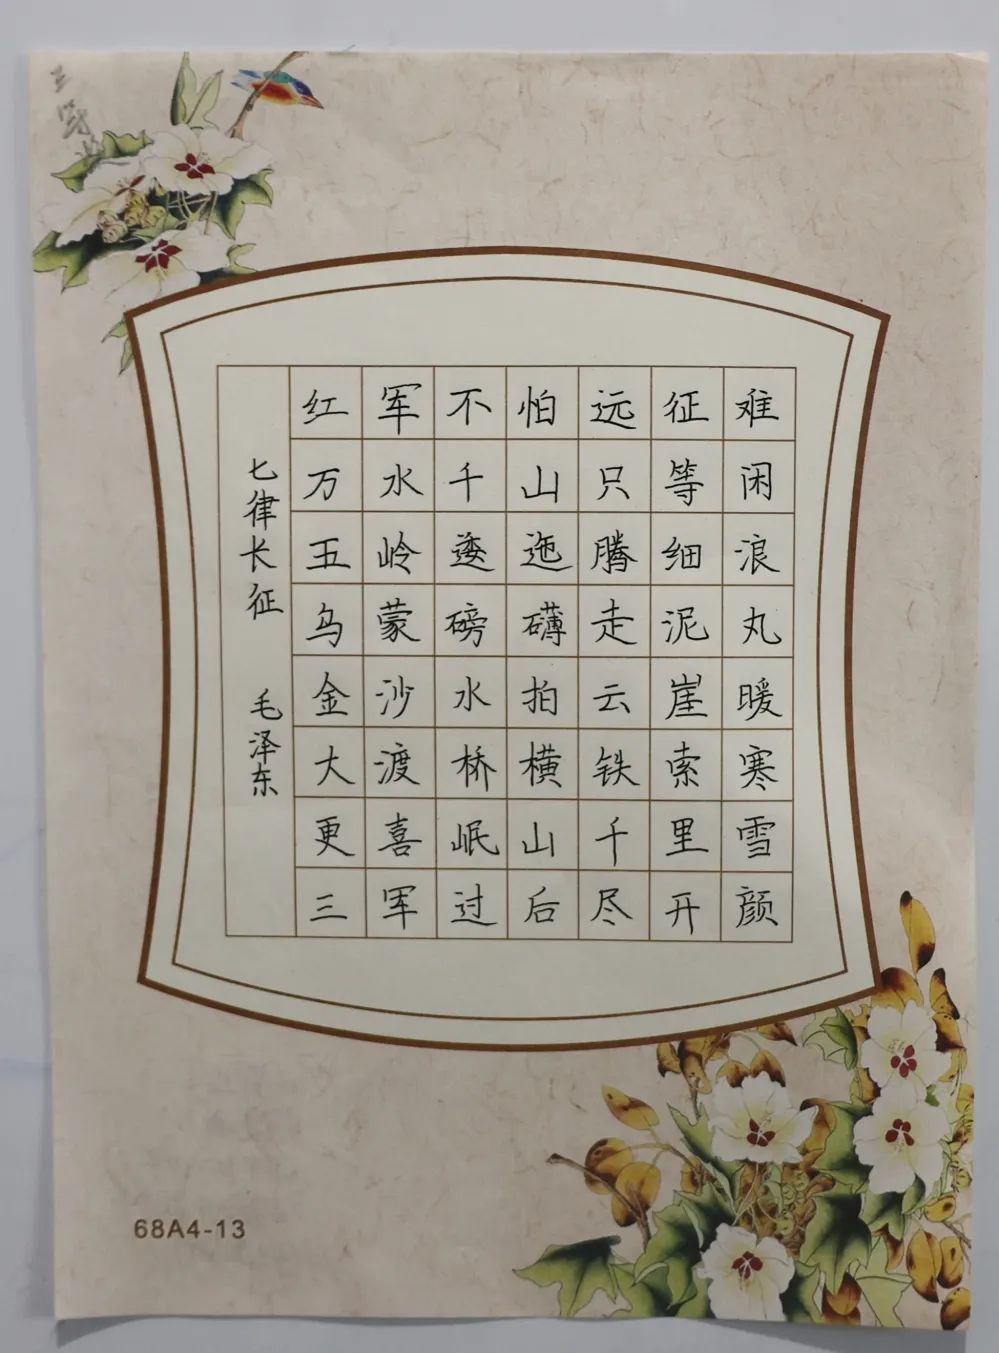 七律长征 毛泽东
红军不怕远征难
万水千山只等闲
五岭逶迤腾细浪
乌蒙磅礴走泥丸
金沙水拍云崖暖
大渡桥横铁索寒
更喜岷山千里雪
三军过后尽开颜
68A4-13